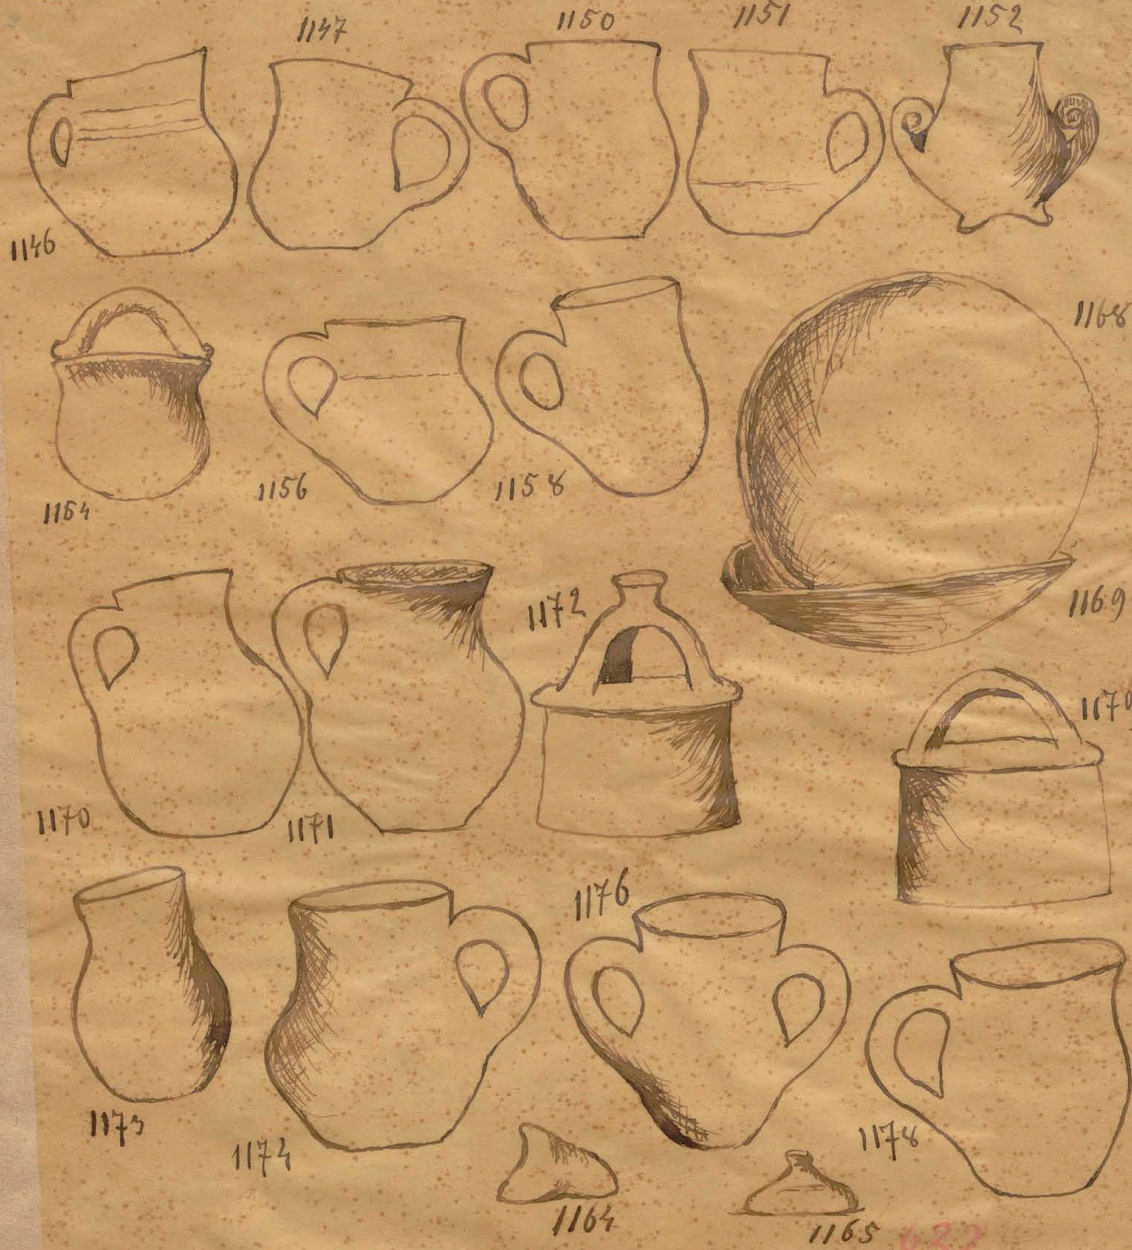 1147
1150
1151
1152
1146
1168
1154
1156
1158
1172
1169
1170
1171
1176
1173
1174
1178
1164
1165